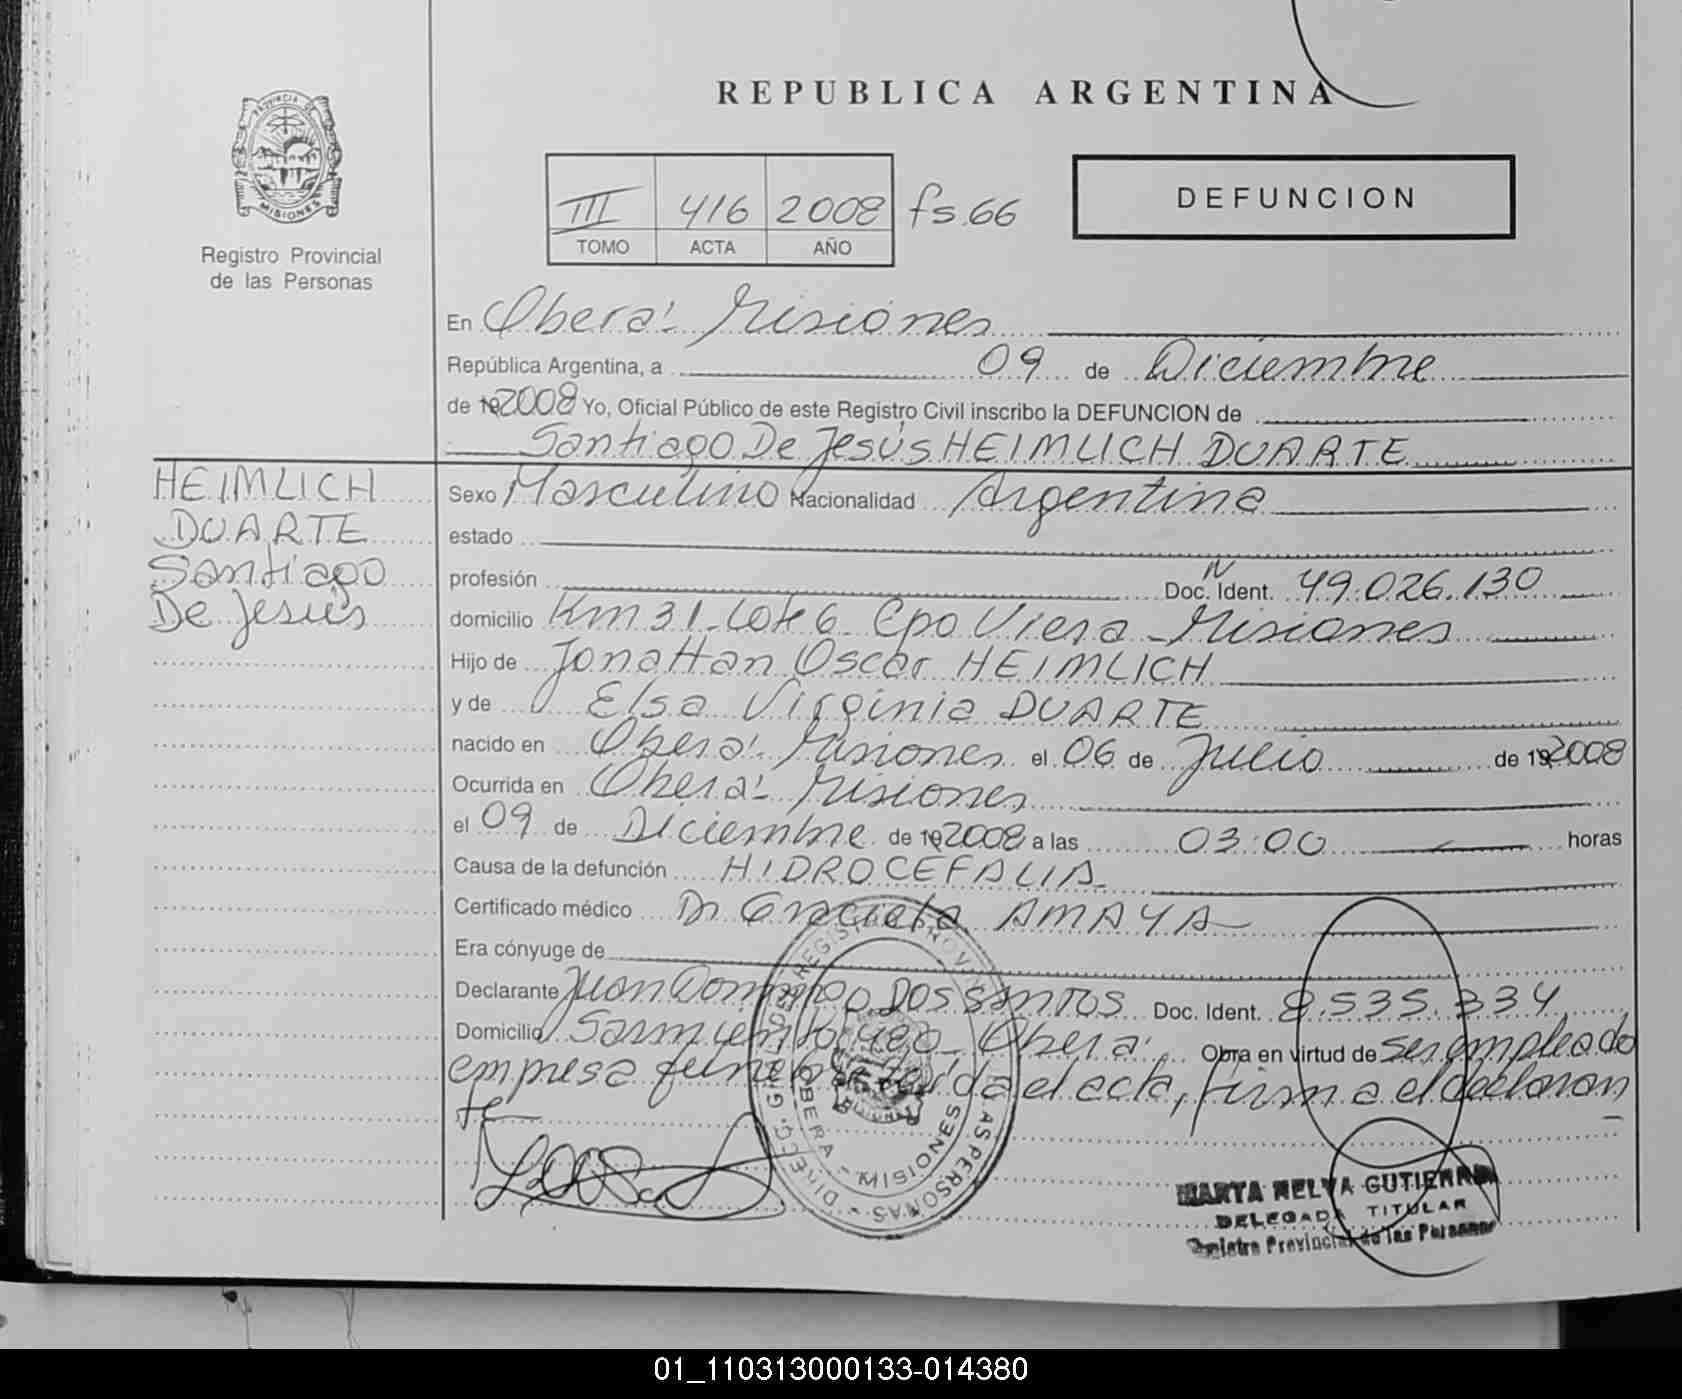 REPUBLICA ARGENTINA
PROVINCIA DE
MISIONES
Registro Provincial
de las Personas
III 416 2008 fs.66
TOMO ACTA AÑO
DEFUNCION
En Oberá - Misiones
República Argentina, a 09 de Diciembre
de 192008 Yo, Oficial Público de este Registro Civil inscribo la DEFUNCION de
Santiago De Jesús HEIMLICH DUARTE
HEIMLICH
DUARTE
Santiago
De Jesús
Sexo Masculino Nacionalidad Argentina
estado
profesión Doc. Ident. 49.026.130
domicilio Km 31 - Lote 6 - Cpo Viera - Misiones
Hijo de Jonattan Oscar HEIMLICH
y de Elsa Virginia DUARTE
nacido en Oberá - Misiones el 06 de Julio de 192008
Ocurrida en Oberá - Misiones
el 09 de Diciembre de 192008 a las 03:00 horas
Causa de la defunción HIDROCEFALIA
Certificado médico Dr Graciela AMAYA
Era cónyuge de
Declarante Juan Domingo DOS SANTOS Doc. Ident. 8.535.334
Domicilio Sarmiento Oberá Obra en virtud de ser empleado
empresa fúnebre leída el acta, firma el declaran
te
OBERA - MISIONES
MARTA NELVA GUTIERREZ
DELEGADA TITULAR
Registro Provincial de las Personas
01_110313000133-014380